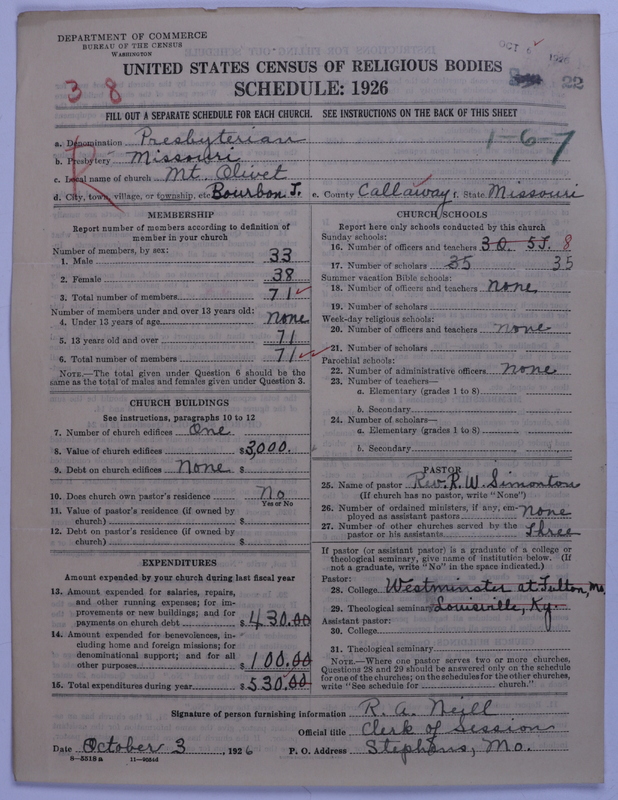 DEPARTMENT OF COMMERCE
BUREAU OF THE CENSUS
WASHINGTON
OCT 6 1926
UNITED STATES CENSUS OF RELIGIOUS BODIES
SCHEDULE: 1926
3 8
22
FILL OUT A SEPARATE SCHEDULE FOR EACH CHURCH. SEE INSTRUCTIONS ON THE BACK OF THIS SHEET
a. Denomination Presbyterian
1-6-7
b. Presbytery Missouri
R
c. Local name of church Mt. Olivet
d. City, town, village, or township, etc. Bourbon T. e. County Callaway f. State Missouri
MEMBERSHIP
Report number of members according to definition of
member in your church
Number of members, by sex:
1. Male 33
2. Female 38
3. Total number of members 71
Number of members under and over 13 years old:
4. Under 13 years of age none
5. 13 years old and over 71
6. Total number of members 71
NOTE.—The total given under Question 6 should be the
same as the total of males and females given under Question 3.
CHURCH BUILDINGS
See instructions, paragraphs 10 to 12
7. Number of church edifices One
8. Value of church edifices $3,000.
9. Debt on church edifices None $
10. Does church own pastor's residence No
Yes or No
11. Value of pastor's residence (if owned by
church) $
12. Debt on pastor's residence (if owned by
church) $
EXPENDITURES
Amount expended by your church during last fiscal year
13. Amount expended for salaries, repairs,
and other running expenses; for im-
provements or new buildings; and for
payments on church debt $430.00
14. Amount expended for benevolences, in-
cluding home and foreign missions; for
denominational support; and for all
other purposes $100.00
15. Total expenditures during year $530.00
CHURCH SCHOOLS
Report here only schools conducted by this church
Sunday schools:
16. Number of officers and teachers 3 O. 5 T. 8
17. Number of scholars 35 35
Summer vacation Bible schools:
18. Number of officers and teachers none
19. Number of scholars
Week-day religious schools:
20. Number of officers and teachers none
21. Number of scholars
Parochial schools:
22. Number of administrative officers none
23. Number of teachers—
a. Elementary (grades 1 to 8)
b. Secondary
24. Number of scholars—
a. Elementary (grades 1 to 8)
b. Secondary
PASTOR
25. Name of pastor Rev. R. W. Simonton
(If church has no pastor, write "None")
26. Number of ordained ministers, if any, em-
ployed as assistant pastors none
27. Number of other churches served by the
pastor or his assistants Three
If pastor (or assistant pastor) is a graduate of a college or
theological seminary, give name of institution below. (If
not a graduate, write "No" in the space indicated.)
Pastor:
28. College Westminster at Fulton, Mo.
29. Theological seminary Louisville, Ky.
Assistant pastor:
30. College
31. Theological seminary
NOTE.—Where one pastor serves two or more churches,
Questions 28 and 29 should be answered only on the schedule
for one of the churches; on the schedules for the other churches,
write "See schedule for church."
Signature of person furnishing information R. A. Neill
Official title Clerk of Session
Date October 3, 1926 P. O. Address Stephens, Mo.
8—5518 a